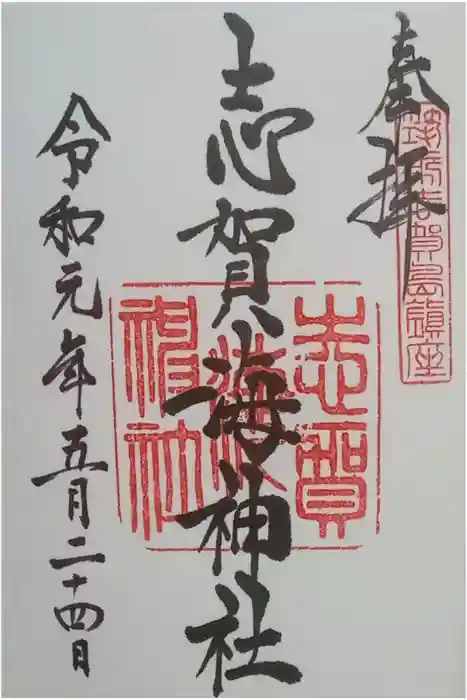 奉拝
筑前志賀島鎮座
志賀海神社
志賀海神社
令和元年五月二十四日